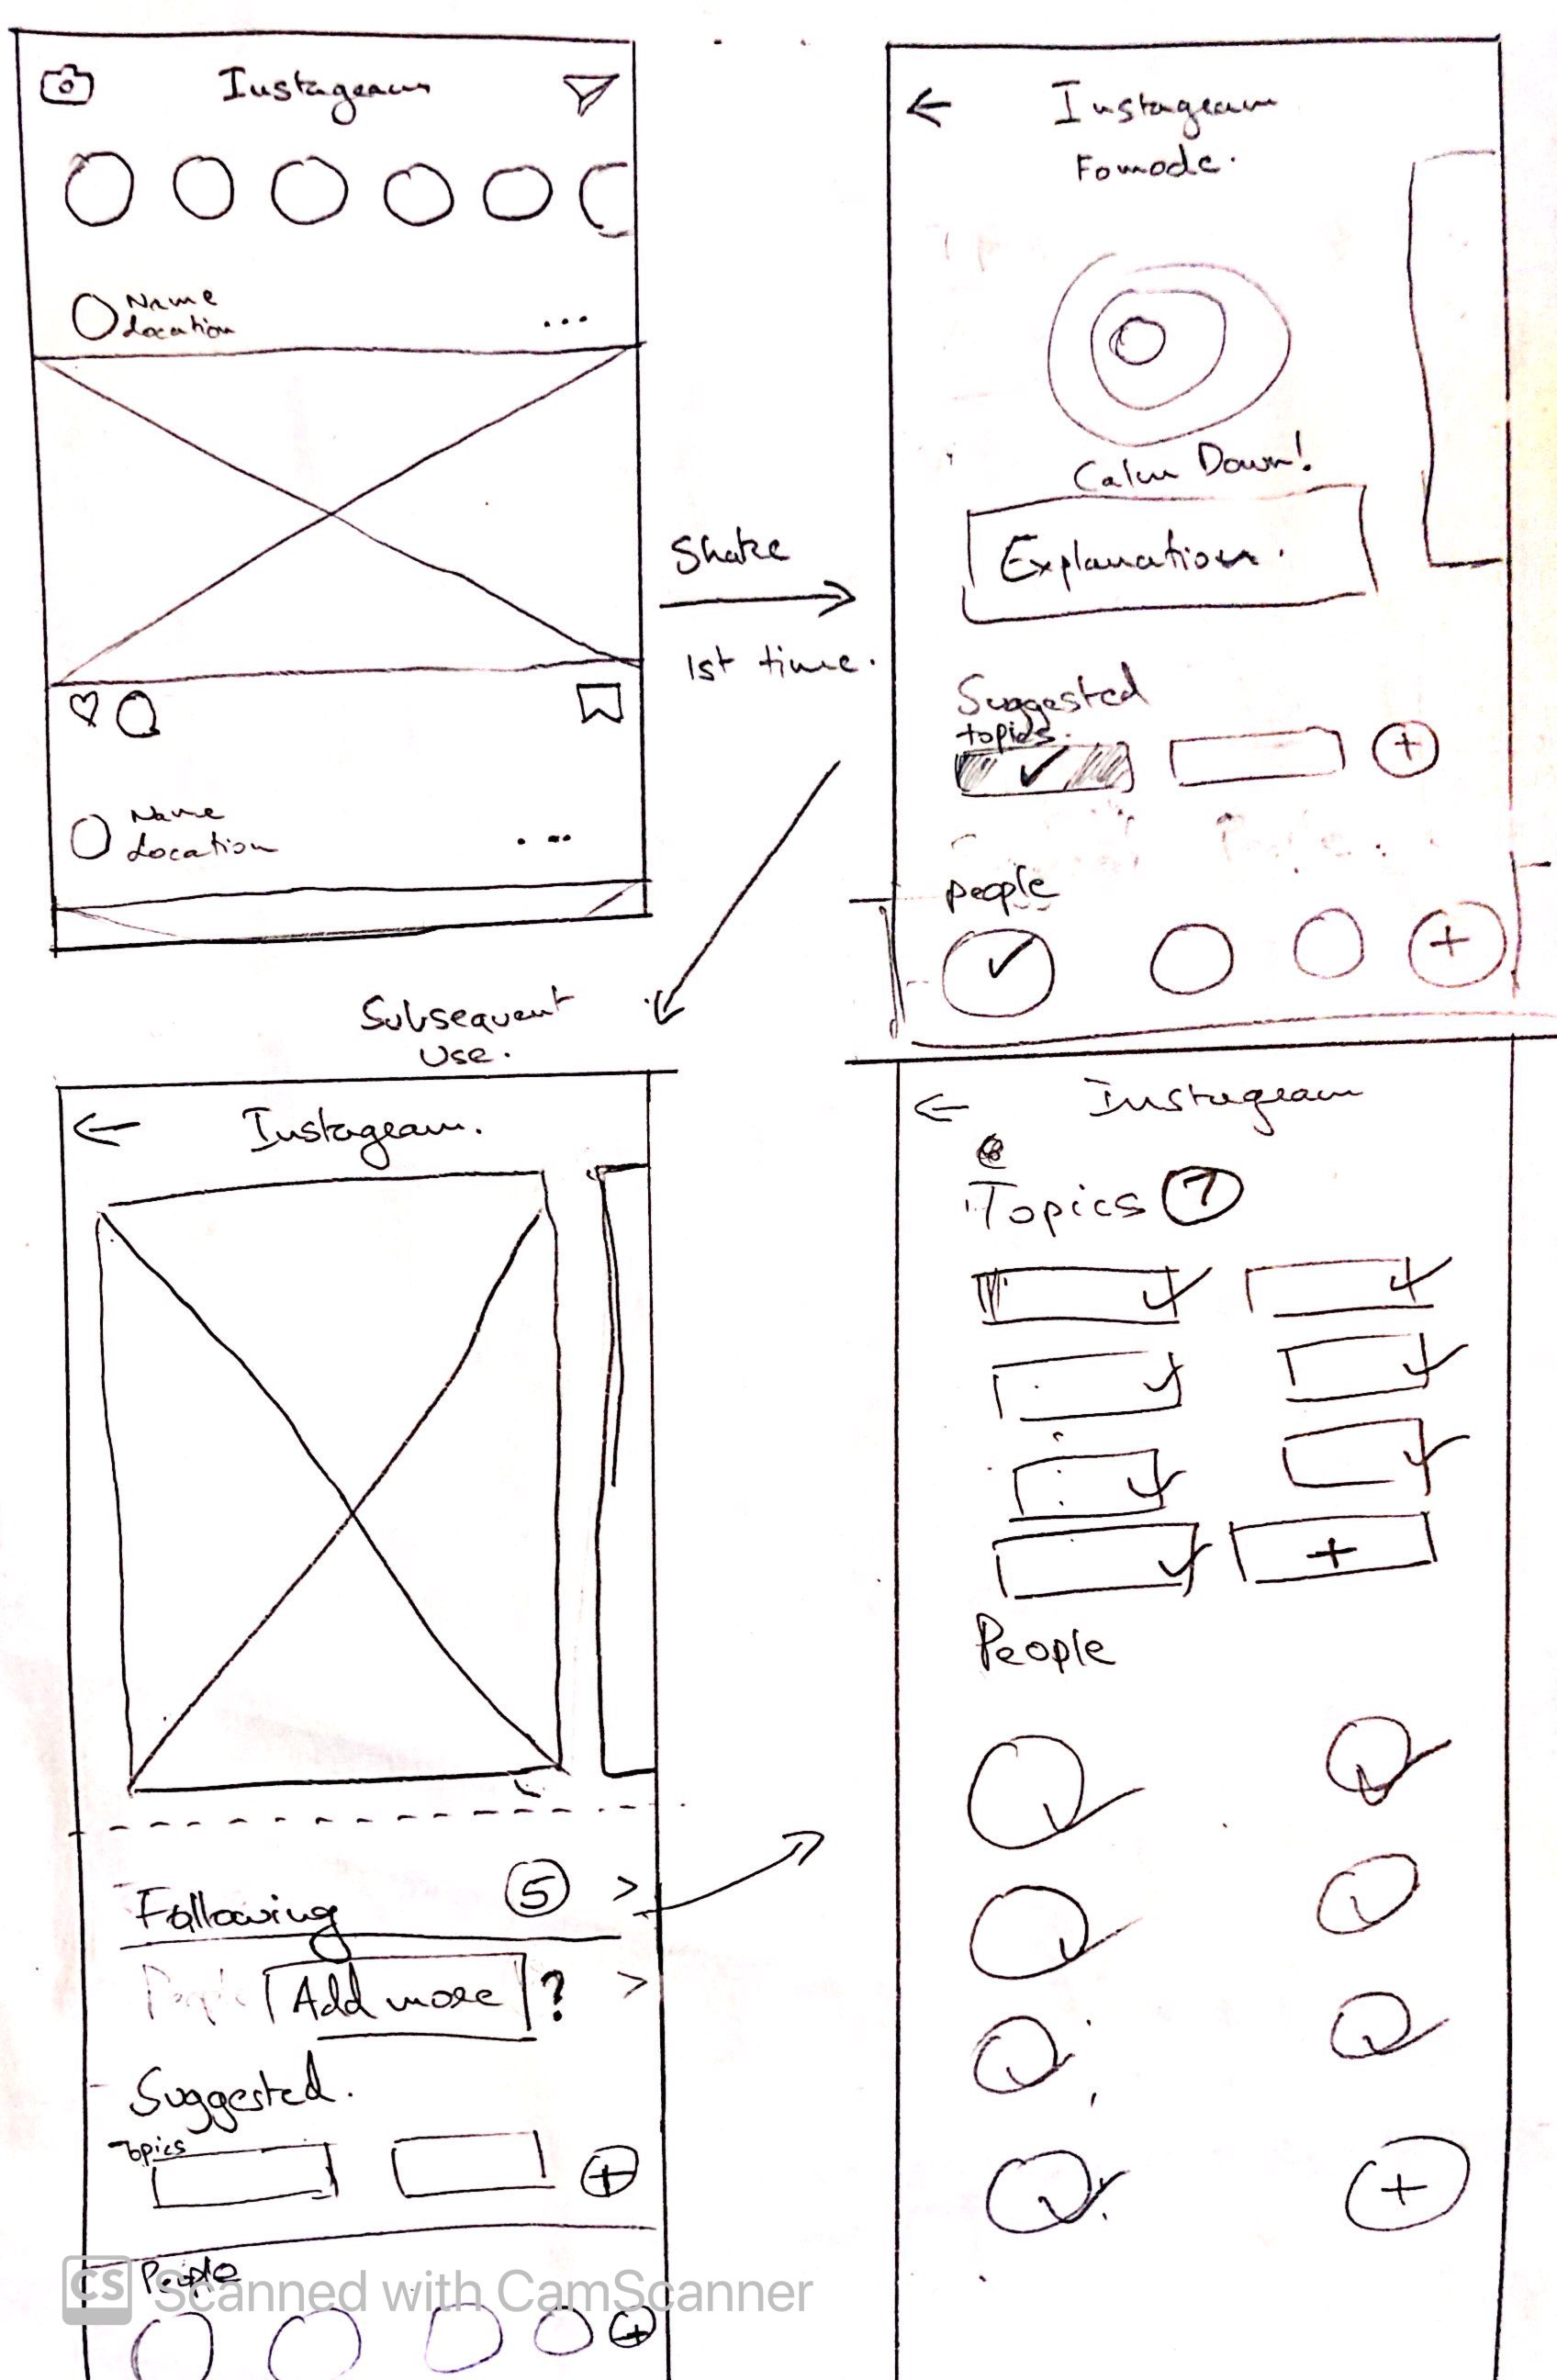 Instagram
Name
Location
Name
Location
Shake
1st time.
Instagram
Fomode.
Calm Down!
Explanation.
Suggested
topics.
people
Subsequent
Use.
Instagram.
Following 5 >
People Add more ? >
Suggested.
Topics
People
Instagram
Topics 7
People
CS Scanned with CamScanner